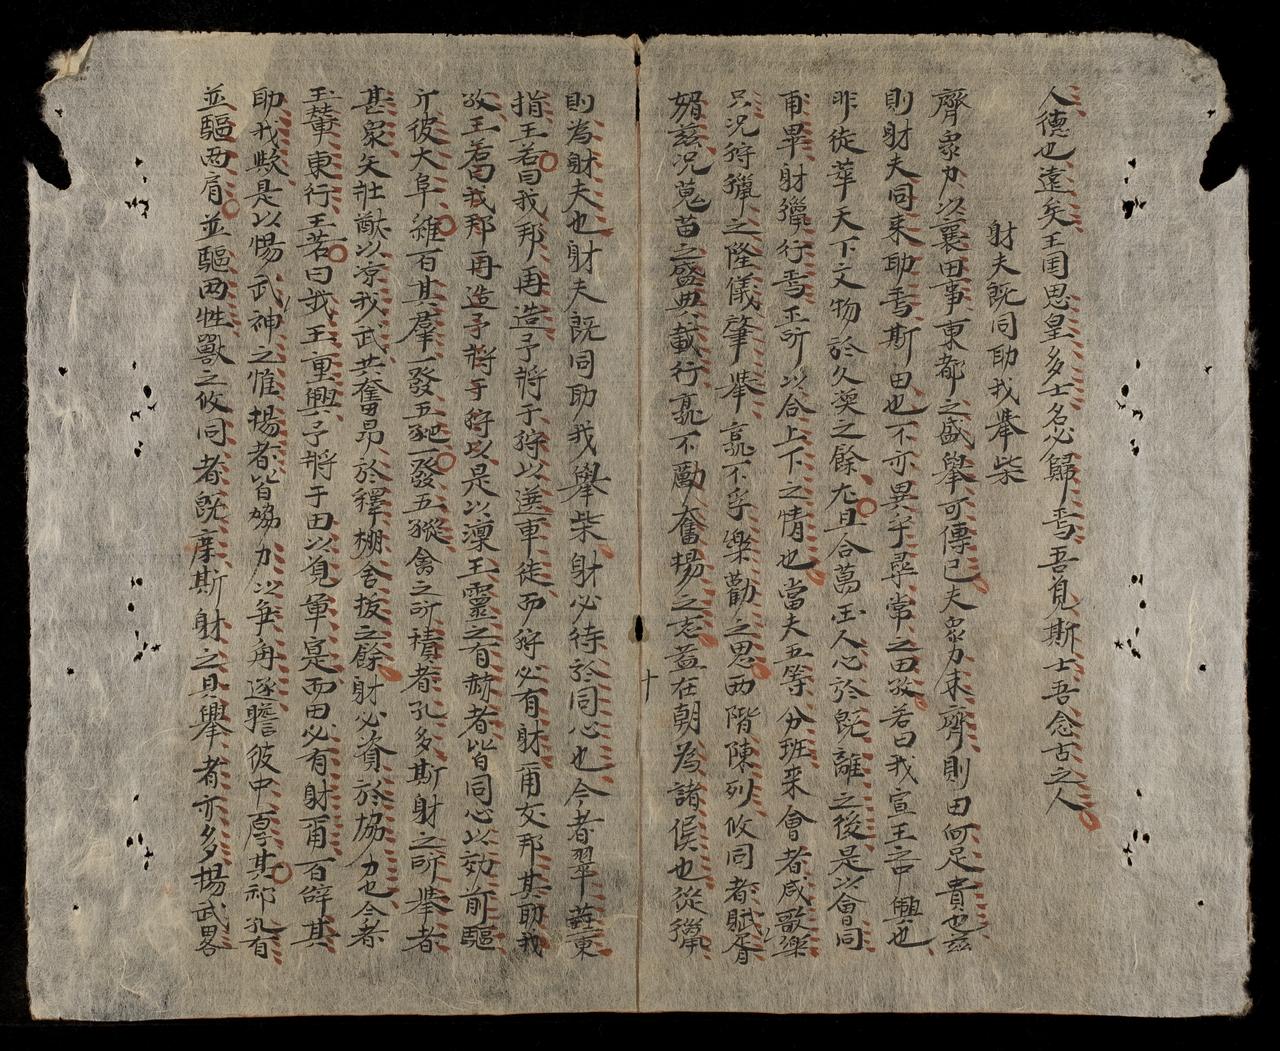 人德也遠矣王国思皇多士名必歸焉吾覓斯士吾念古之人
射夫既同助我舉柴
齊衆力以襄田事東都之盛舉可傳已夫衆力未齊則田何足貴也茲
則射夫同來助焉斯田也不亦異乎尋常之田故若曰我宣王啓興也
昨徒萃天下文物於久渙之餘尤且合萬玉人心於既離之後是以會同
甫畢財獵行焉正所以合上下之情也當夫五等分班來會者咸歌樂
只況狩獵之隆儀肇舉孰不孚樂勸之思两階陳列攸同者賦胥
媚茲況蒐苗之盛典載行孰不勵奮揚之志盖在朝為諸侯也從獵
則為射夫也射夫既同助我舉柴射必待於同心也今者翠華東
指王若曰我邦再造予將于狩以選車徒而狩必有射甫友邦其助我
故王若曰我邦再造予將于狩以是以凜王靈之有赫者皆同心以効前驅
斤彼大阜雖百其羣一發五豝一發五豵禽之所積者孔多斯射之所舉者
甚衆矣壯猷以凉我武共奮田昂於釋棚舍拔之餘射必資於協力也今者
玉輦東行王若曰我王重興予將于田以覓軍寔而田必有射甫百辟其
助我歟是以惕武神之惟揚者皆協力以無舟逐瞻彼中原其祁孔有
並驅两肩並驅两牲獸之攸同者既庶斯射之具舉者亦多揚武畧
十